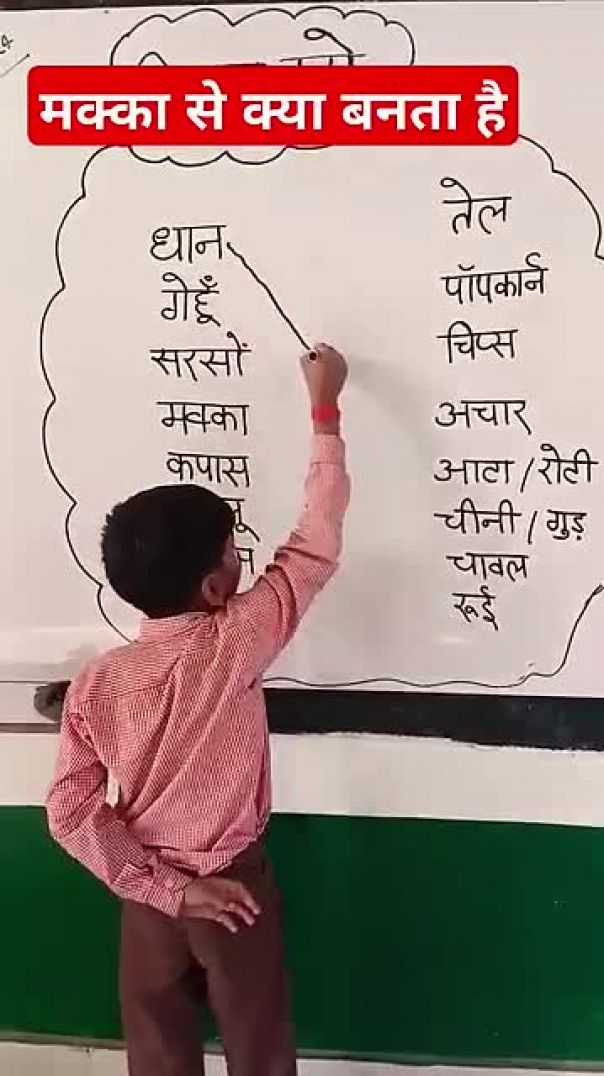 मक्का से क्या बनता है
धान
गेहूँ
सरसों
मक्का
कपास
तेल
पॉपकार्न
चिप्स
अचार
आटा / रोटी
चीनी / गुड़
चावल
रूई